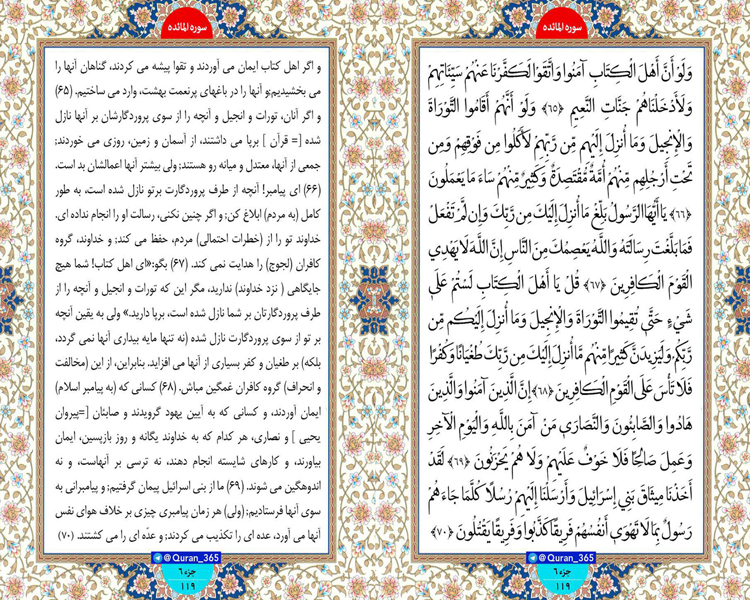 سوره المائده
وَلَوْ أَنَّ أَهْلَ الْكِتَابِ آمَنُوا وَاتَّقَوْا لَكَفَّرْنَا عَنْهُمْ سَيِّئَاتِهِمْ
وَلَأَدْخَلْنَاهُمْ جَنَّاتِ النَّعِيمِ ﴿٦٥﴾ وَلَوْ أَنَّهُمْ أَقَامُوا التَّوْرَاةَ
وَالْإِنْجِيلَ وَمَا أُنْزِلَ إِلَيْهِمْ مِّن رَّبِّهِمْ لَأَكَلُوا مِن فَوْقِهِمْ وَمِن
تَحْتِ أَرْجُلِهِم مِّنْهُمْ أُمَّةٌ مُّقْتَصِدَةٌ وَكَثِيرٌ مِّنْهُمْ سَاءَ مَا يَعْمَلُونَ
﴿٦٦﴾ يَا أَيُّهَا الرَّسُولُ بَلِّغْ مَا أُنْزِلَ إِلَيْكَ مِن رَّبِّكَ وَإِن لَّمْ تَفْعَلْ
فَمَا بَلَّغْتَ رِسَالَتَهُ وَاللَّهُ يَعْصِمُكَ مِنَ النَّاسِ إِنَّ اللَّهَ لَا يَهْدِي
الْقَوْمَ الْكَافِرِينَ ﴿٦٧﴾ قُلْ يَا أَهْلَ الْكِتَابِ لَسْتُمْ عَلَى
شَيْءٍ حَتَّى تُقِيمُوا التَّوْرَاةَ وَالْإِنْجِيلَ وَمَا أُنْزِلَ إِلَيْكُم مِّن
رَّبِّكُمْ وَلَيَزِيدَنَّ كَثِيرًا مِّنْهُم مَّا أُنْزِلَ إِلَيْكَ مِن رَّبِّكَ طُغْيَانًا وَكُفْرًا
فَلَا تَأْسَ عَلَى الْقَوْمِ الْكَافِرِينَ ﴿٦٨﴾ إِنَّ الَّذِينَ آمَنُوا وَالَّذِينَ
هَادُوا وَالصَّابِئُونَ وَالنَّصَارَى مَنْ آمَنَ بِاللَّهِ وَالْيَوْمِ الْآخِرِ
وَعَمِلَ صَالِحًا فَلَا خَوْفٌ عَلَيْهِمْ وَلَا هُمْ يَحْزَنُونَ ﴿٦٩﴾ لَقَدْ
أَخَذْنَا مِيثَاقَ بَنِي إِسْرَائِيلَ وَأَرْسَلْنَا إِلَيْهِمْ رُسُلًا كُلَّمَا جَاءَهُمْ
رَسُولٌ بِمَا لَا تَهْوَى أَنْفُسُهُمْ فَرِيقًا كَذَّبُوا وَفَرِيقًا يَقْتُلُونَ ﴿٧٠﴾
@Quran_365
جزء ٦
١١٩
سوره المائده
و اگر اهل کتاب ایمان می آوردند و تقوا پیشه می کردند، گناهان آنها را
می بخشیدیم؛و آنها را در باغهای پرنعمت بهشت، وارد می ساختیم. (۶۵)
و اگر آنان، تورات و انجیل و آنچه را از سوی پروردگارشان بر آنها نازل
شده [= قرآن ] برپا می داشتند، از آسمان و زمین، روزی می خوردند؛
جمعی از آنها، معتدل و میانه رو هستند؛ ولی بیشتر آنها اعمالشان بد است.
(۶۶) ای پیامبر! آنچه از طرف پروردگارت برتو نازل شده است، به طور
کامل (به مردم) ابلاغ کن؛ و اگر چنین نکنی، رسالت او را انجام نداده ای.
خداوند تو را از (خطرات احتمالی) مردم، حفظ می کند؛ و خداوند، گروه
کافران (لجوج) را هدایت نمی کند. (۶۷) بگو:«ای اهل کتاب! شما هیچ
جایگاهی ( نزد خداوند) ندارید، مگر این که تورات و انجیل و آنچه را از
طرف پروردگارتان بر شما نازل شده است، برپا دارید.» ولی به یقین آنچه
بر تو از سوی پروردگارت نازل شده (نه تنها مایه بیداری آنها نمی گردد،
بلکه) بر طغیان و کفر بسیاری از آنها می افزاید. بنابراین، از این (مخالفت
و انحراف) گروه کافران غمگین مباش. (۶۸) کسانی که (به پیامبر اسلام)
ایمان آوردند، و کسانی که به آیین یهود گرویدند و صابئان [=پیروان
یحیی ] و نصاری، هر کدام که به خداوند یگانه و روز بازپسین، ایمان
بیاورند، و کارهای شایسته انجام دهند، نه ترسی بر آنهاست، و نه
اندوهگین می شوند. (۶۹) ما از بنی اسرائیل پیمان گرفتیم؛ و پیامبرانی به
سوی آنها فرستادیم؛ (ولی) هر زمان پیامبری چیزی بر خلاف هوای نفس
آنها می آورد، عده ای را تکذیب می کردند؛ و عدّه ای را می کشتند. (۷۰)
@Quran_365
جزء ٦
١١٩